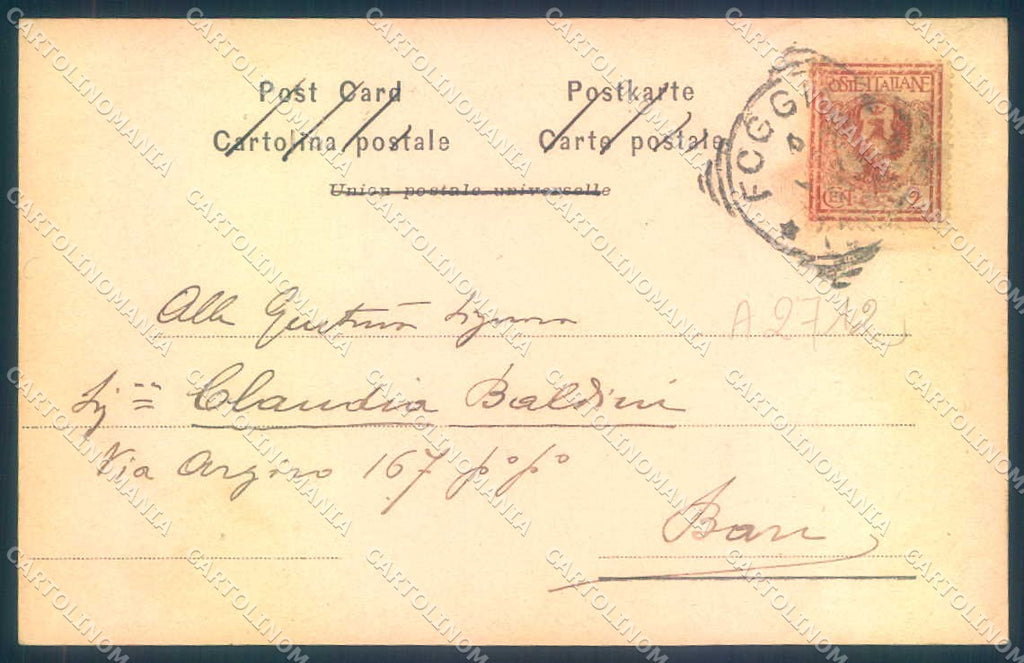 Post Card Postkarte
Cartolina postale Carte postale
Union postale universelle
FOGGI
POSTE ITALIANE
CENT. 2
Alla Gentma Signora
A2712
Sig na Claudia Baldini
Via Argiro 167 p° p°
Bari
CARTOLINOMANIA